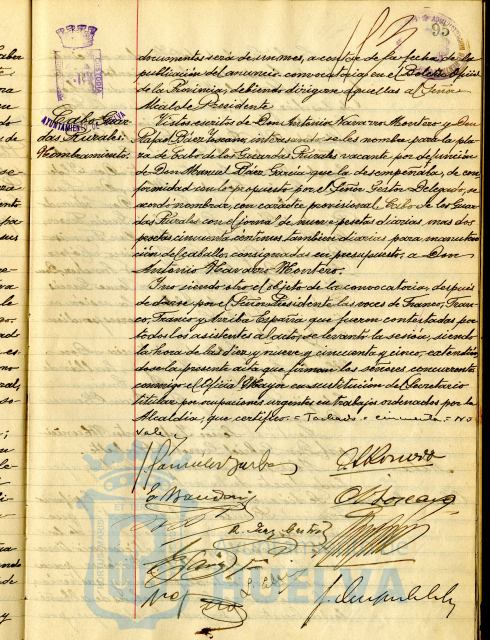 95
documentos será de un mes, a contar de la fecha de la
publicación del anuncio convocatoria en el Boletín Oficial
de la Provincia, debiendo dirigirse aquellas al Señor
Alcalde Presidente
Cabo Guar-
das Rurales.
Nombramiento.
AYUNTAMIENTO DE HUELVA
Vistos escritos de Don Antonio Navarro Montero y Don
Rafael Báez interesando se les nombre para la pla-
za de Cabo de los Guardas Rurales vacante por defunción
de Don Manuel Báez García que la desempeñaba, de con-
formidad con lo propuesto por el Señor Gestor Delegado, se
acordó nombrar, con carácter provisional, Cabo de los Guar-
das Rurales con el jornal de nueve pesetas diarias, mas dos
pesetas cincuenta céntimos también diarias para manuten-
ción del caballo, consignadas en presupuesto, a Don
Antonio Navarro Montero.
Y no siendo otro el objeto de la convocatoria, después
de darse por el Señor Presidente las voces de Franco, Fran-
co, Franco y Arriba España que fueron contestadas por
todos los asistentes al acto, se levantó la sesión, siendo
la hora de las diez y nueve y cincuenta y cinco, extendién-
dose la presente acta que firman los señores concurrentes
conmigo el Oficial Mayor en sustitución de Secretario
titular por ocupaciones urgentes en trabajos ordenados por la
Alcaldía, que certifico. = Tachado = cincuenta = no
vale
Ayuntamiento de
HUELVA